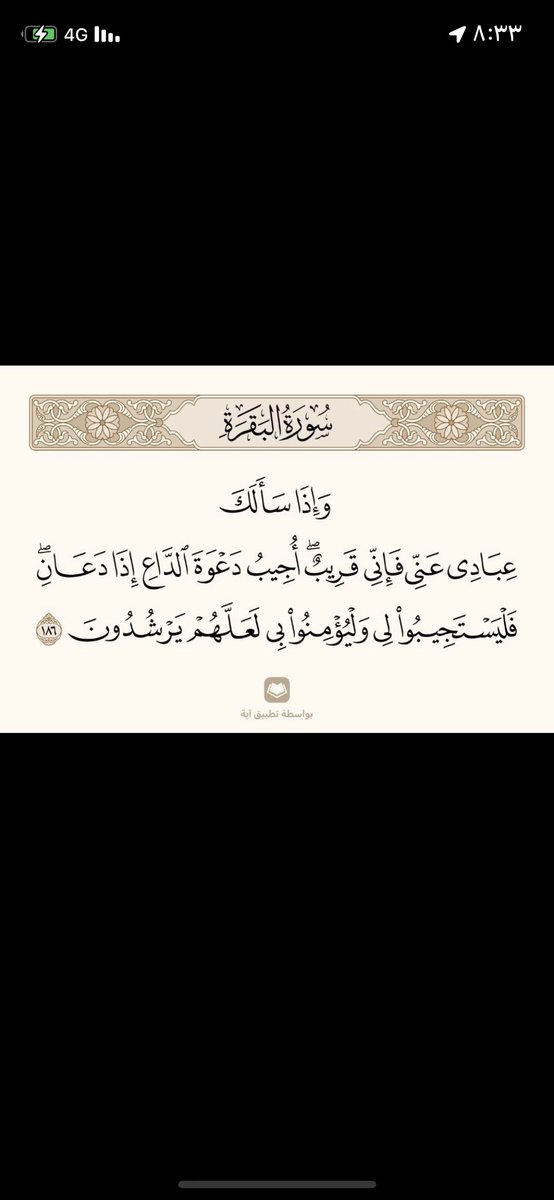 4G ٨:٣٣
سُورَةُ البَقَرَةِ
وَإِذَا سَأَلَكَ
عِبَادِى عَنِّى فَإِنِّى قَرِيبٌۖ أُجِيبُ دَعْوَةَ ٱلدَّاعِ إِذَا دَعَانِۖ
فَلْيَسْتَجِيبُوا۟ لِى وَلْيُؤْمِنُوا۟ بِى لَعَلَّهُمْ يَرْشُدُونَ ١٨٦
بواسطة تطبيق آية